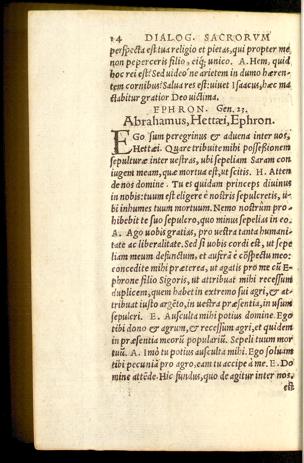 24 DIALOG. SACRORVM
perspecta est tua religio et pietas, qui propter me,
non peperceris filio, eiq́; unico. A. Hem, quid
hoc rei est? Sed uideo'ne arietem in dumo hæren-
tem cornibus? Salua res est: uiuet Isaacus, hæc ma
ctabitur gratior Deo uictima.
EPHRON. Gen. 23.
Abrahamus, Hettæi, Ephron.
EGo sum peregrinus & aduena inter uos,
Hettæi. Quare tribuite mihi possessionem
sepulturæ inter uestras, ubi sepeliam Saram con
iugem meam, quæ mortua est, ut scitis. H. Atten
de nos domine. Tu es quidam princeps diuinus
in nobis: tuum est eligere è nostris sepulcretis, u-
bi inhumes tuum mortuum. Nemo nostrûm pro-
hibebit te suo sepulcro, quo minus sepelias in eo.
A. Ago uobis gratias, pro uestra tanta humani-
tate ac liberalitate. Sed si uobis cordi est, ut sepe
liam meum defunctum, et auferā è cōspectu meo:
concedite mihi præterea, ut agatis pro me cū E-
phrone filio Sigoris, ut attribuat mihi recessum
duplicem, quem habet in extremo sui agri, & at-
tribuat iusto argēto, in uestra præsentia, in usum
sepulcri. E. Ausculta mihi potius domine. Ego
tibi dono & agrum, & recessum agri, et quidem
in præsentia meorū popularium. Sepeli tuum mor
tuū. A. Imò tu potius ausculta mihi. Ego soluam
tibi pecuniā pro agro, eam tu accipe à me. E. Do
mine attēde. Hic fundus, quo de agitur inter nos,
est